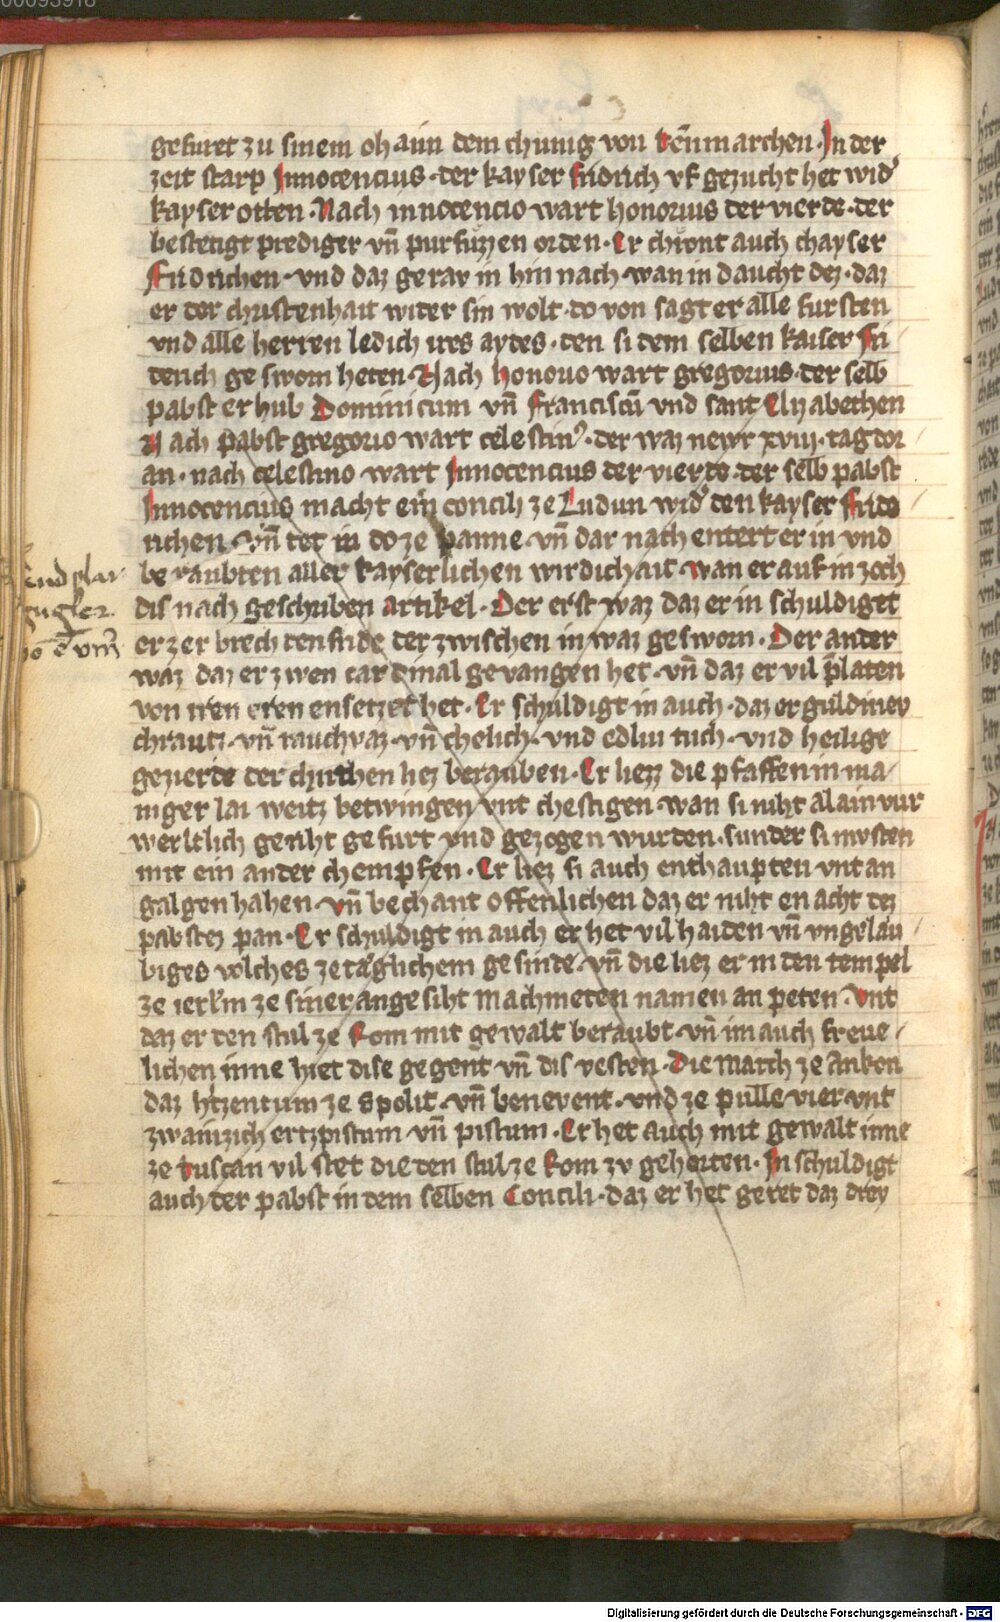 gefuret zu sinem ohaim dem chunig von tenmarchen. In der
zeit starp Innocencius. der kayser Fridrich vf gezucht het wid'
kayser otten. Nach innocencio wart honorius der vierde. der
bestetigt prediger vn̄ purfuzzen orden. Er chront auch chayser
Fridrichen. vnd daz geraw in hin nach. wan in daucht dez. daz
er der christenhait wider sin wolt. do von sagt er alle fursten
vnd alle herren ledich irrs aydes. den si dem selben kaiser Fri
derich ge sworn heten. Nach honorio wart gregorius. der selb
pabst erhub Dominicum vn̄ Franciscū vnd sant Elyzabethen
Nach pabst gregorio wart celestin'. der waz newr xviij. tag dor
an. nach celestino wart Innocencius der vierde. der selb pabst
Innocencius macht ein concili ze Ludun wid' den kayser Fride
richen. vn̄ tet in do ze panne. vn̄ dar nach entert er in vnd
beraubten aller kayserlichen wirdichait. wan er auf in zoch
dis nach geschriben artikel. Der erst waz daz er in schuldiget
er zerbrech den fride der zwischen in waz gesworn. Der ander
waz daz er zwen cardinal gevangen het. vn̄ daz er vil platen
von iren eren ensetzet het. Er schuldigt in auch. daz er guldinev
chrautz. vn̄ rauchvaz. vn̄ chelich. vnd edliu tuch. vnd heilige
gezierde der chirchen liez berauben. Er liezz die pfaffen in ma
niger lai weitz betwingen vnt chestigen. wan si niht alain vur
werltlich geriht gefurt vnd gezogen wurden. sunder si mvsten
mit ein ander chempfen. Er liez si auch enthaupten vnt an
galgen hahen. vn̄ bechant offenlichen daz er niht en acht dez
pabstez pan. Er schuldigt in auch er het vil haiden vn̄ vngelau
biges volches ze täglichem gesinde. vn̄ die liez er in den tempel
ze ierl'm ze siner angesiht machmeten namen an peten. Vnt
daz er den stul ze Rom mit gewalt beraubt. vn̄ im auch freue
lichen inne hiet dise gegent vn̄ dis vesten. Die march ze Ankon
daz h'tzentum ze spolit. vn̄ benevent. vnd ze pulle vier vnt
zwainzich ertzpistum vn̄ pistum. Er het auch mit gewalt inne
ze tuscan vil stet die den stul ze Rom zv gehorten. In schuldigt
auch der pabst in dem selben Concili. daz er het geret daz drey